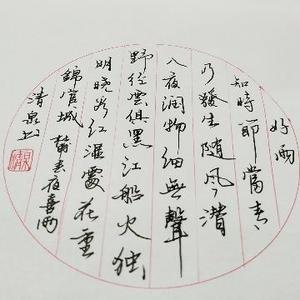 好雨
知時節當春
乃發生隨風潛
入夜潤物細無聲
野徑雲俱黑江船火独
明曉看红濕處花重
錦官城 春夜喜雨
清泉